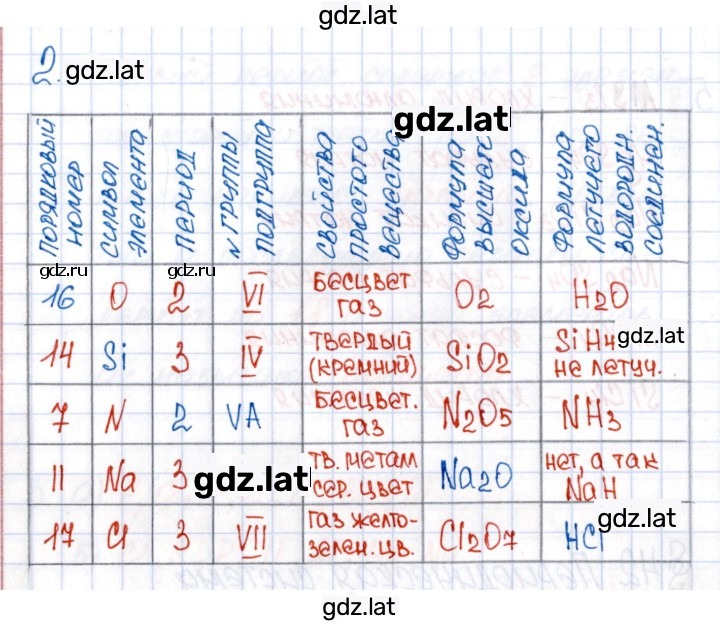 gdz.lat
2.
gdz.lat
gdz.lat
порядковый номер
символ элемента
период
N группы подгруппа
свойства простого вещества
формула высшего оксида
формула летучего водородн. соединен.
gdz.ru gdz.ru
16 O 2 VI бесцвет. газ O2 H2O
14 Si 3 IV твердый (кремний) SiO2 SiH4 не летуч.
gdz.lat
7 N 2 VA бесцвет. газ N2O5 NH3
11 Na 3 тв. металл сер. цвет Na2O нет, а так NaH
gdz.lat
17 Cl 3 VII газ желто-зелен. цв. Cl2O7 HCl
gdz.lat
gdz.lat